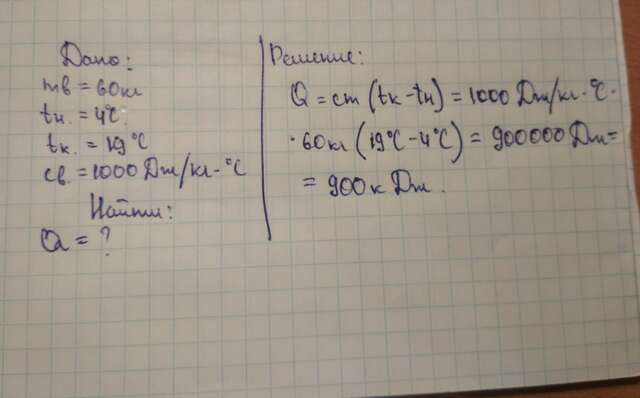 Дано:
mв = 60кг
tн. = 4℃
tк. = 19°C
cв. = 1000 Дж/кг·°C
Найти:
Q = ?
Решение:
Q = cm (tк - tн) = 1000 Дж/кг·°C·
·60кг (19°C - 4°C) = 900000 Дж =
= 900 к Дж.